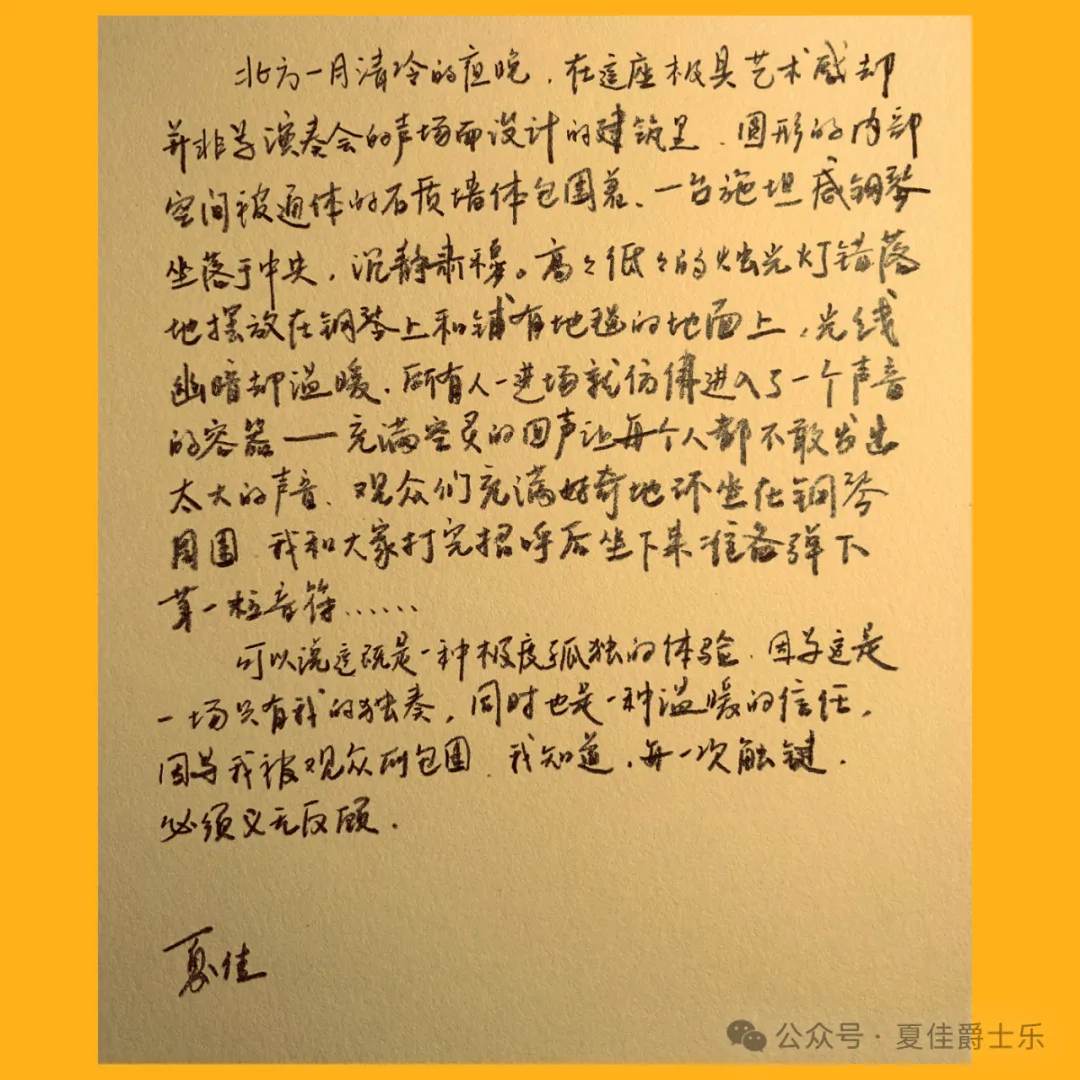 北方一月清冷的夜晚，在這座极具艺术感却
并非为演奏会的声场而设计的建筑里，圆形的内部
空间被通体的石质墙体包围着、一台施坦威钢琴
坐落于中央，沉静肃穆。高々低々的烛光灯错落
地摆放在钢琴上和铺有地毯的地面上，光线
幽暗却温暖，所有人一进场就仿佛进入了一个声音
的容器——充满空灵的回声让每个人都不敢发出
太大的声音、观众们充满好奇地环坐在钢琴
周围，我和大家打完招呼后坐下来准备弹下
第一粒音符……
可以说这既是一种极度孤独的体验，因为这是
一场只有我的独奏，同时也是一种温暖的信任，
因为我被观众所包围，我知道，每一次触键，
必须义无反顾.
夏佳
公众号·夏佳爵士乐